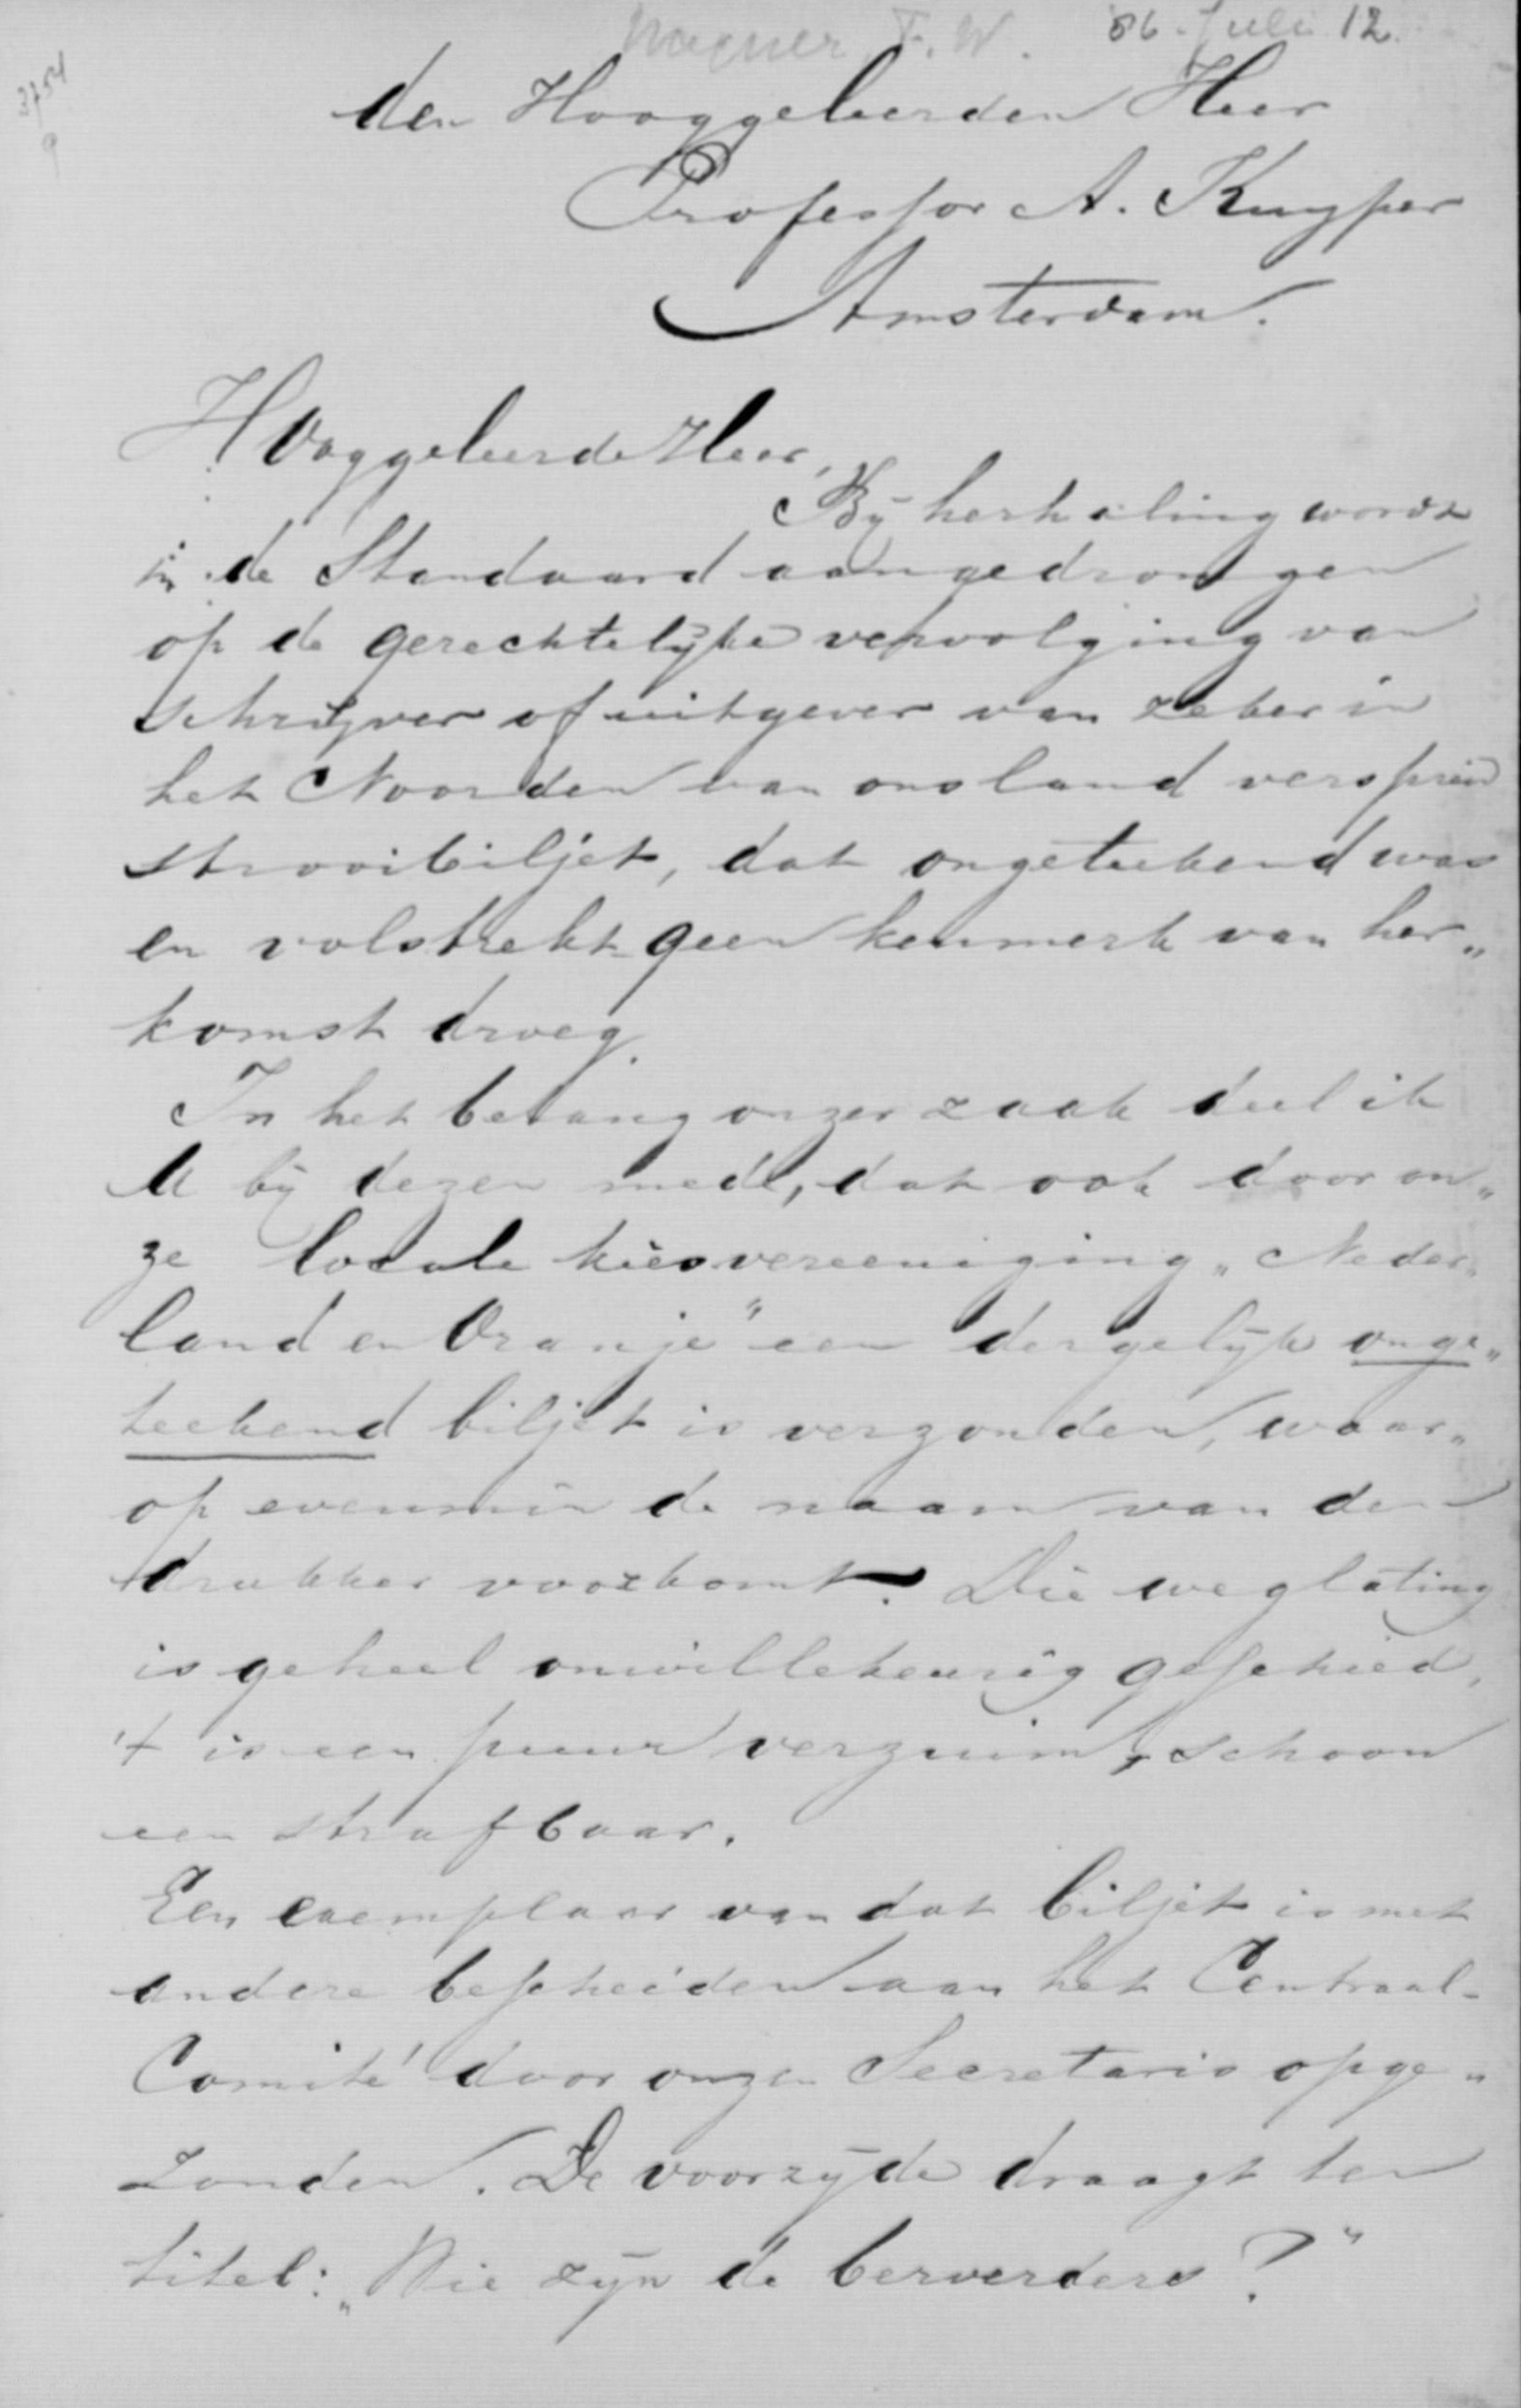 Wagner F. W. 86. Juli 12.
3754
9
den Hooggeleerden Heer
Professor A. Kuyper
Amsterdam.
Hooggeleerde Heer,
Bij herhaling wordt
in de Standaard aangedrongen
op de gerechtelijke vervolging van
schrijver of uitgever van zeker in
het Noorden van ons land verspreid
strooibiljet, dat ongeteekend was
en volstrekt geen kenmerk van her„
komst droeg.
In het belang onzer zaak deel ik
U bij dezen mede, dat ook door on„
ze locale kiesvereeniging „Neder„
land en Oranje" een dergelijk onge„
teekend biljet is verzonden, waar„
op evenmin de naam van den
drukker voorkomt. Die weglating
is geheel onwillekeurig geschied,
't is een puur verzuim, schoon
een strafbaar.
Een exemplaar van dat biljet is met
andere bescheiden aan het Centraal-
Comité door onzen Secretaris opge„
zonden. De voorzijde draagt ten
titel: „Wie zijn de beroerders?"